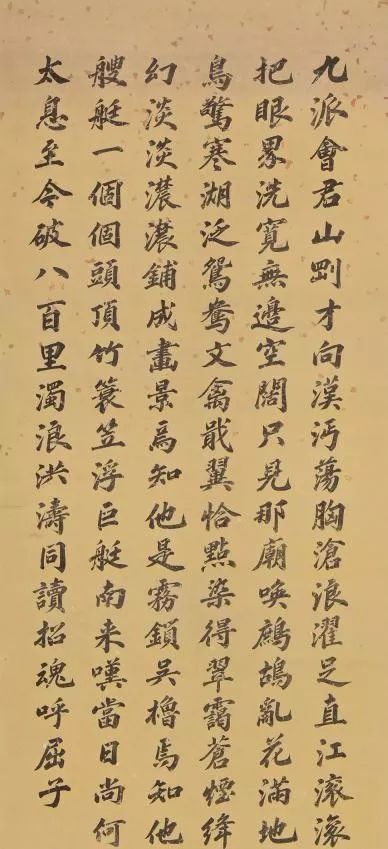 九派會君山剛才向漢沔蕩胸滄浪濯足直江滾滾
把眼界洗寬無邊空闊只見那廟喚鷓鴣亂花滿地
鳥驚寒湖泛鴛鴦文禽戢翼恰點染得翠靄蒼煙絳
幻淡淡濃濃鋪成畫景焉知他是霧鎖吳檣焉知他
艘艇一個個頭頂竹簑笠浮巨艇南来嘆當日尚何
太息至今破八百里濁浪洪濤同讀招魂呼屈子